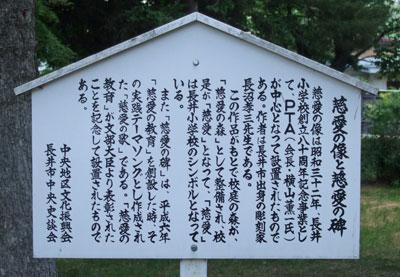 慈愛の像と慈愛の碑
慈愛の像は昭和三十二年、長井
小学校創立八十周年記念事業とし
て、PTA(会長・横山薫一氏)
が中心となって設置されたもので
ある。作者は長井市出身の彫刻家
長沼孝三先生である。
この作品がもとで校庭の森が、
「慈愛の森」として整備され、校
是が「慈愛」となって、「慈愛」
は長井小学校のシンボルとなって
いる。
また、「慈愛の碑」は、平成六年
「慈愛の教育」を創設した時、そ
の実践テーマソングとして作成され
た、「慈愛の歌」である。「慈愛の
教育」が文部大臣より表彰された
ことを記念して設置されたもので
ある。
中央地区文化振興会
長井市中央史談会